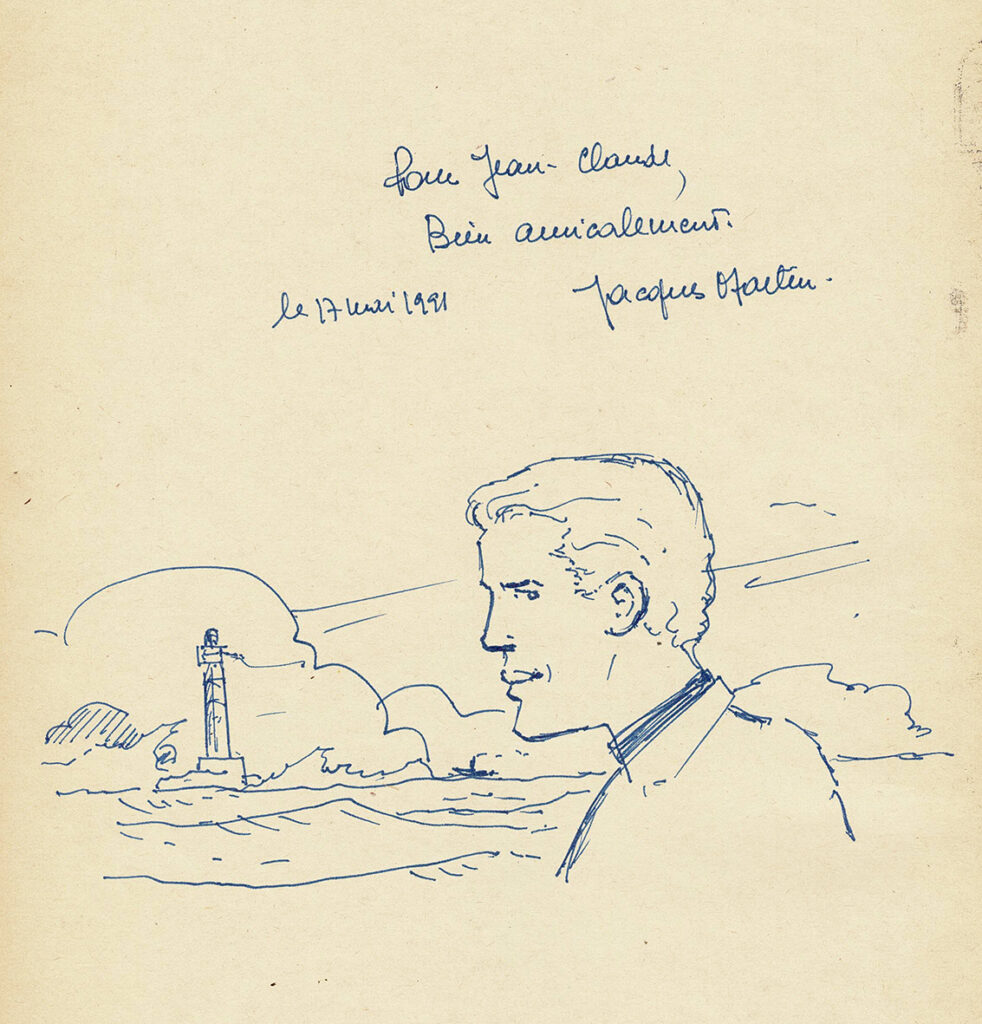 Pour Jean-Claude,
Bien amicalement.
le 17 mai 1991 Jacques Martin.